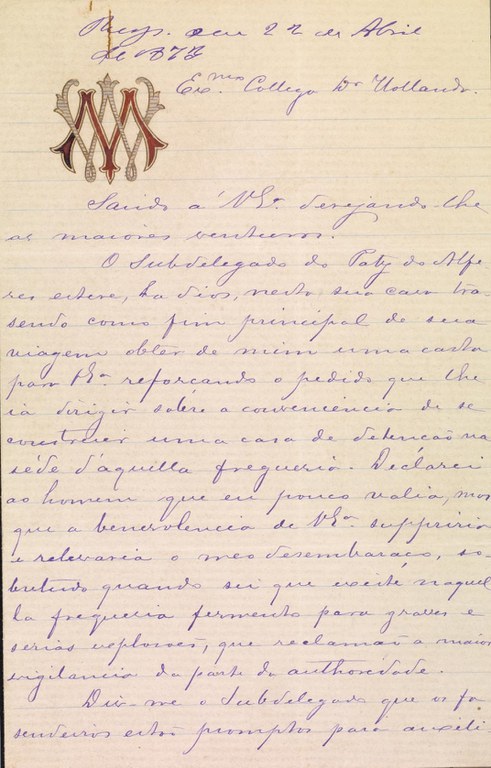 em 22 de Abril
de 1877
Ex.mo Collega Dr Hollanda.
MM
Saúdo á V Ex.a desejando-lhe
as maiores venturas.
O Subdelegado do Paty do Alfe
res esteve, ha dias, nesta sua casa tra
sendo como fim principal de sua
viagem obter de mim uma carta
para V Ex.a reforcando o pedido que lhe
ia dirigir sôbre a conveniencia de se
construir uma casa de detencão na
séde d'aquella fregueria. Declarei
ao homem que eu pouco valia, mas
que a benevolencia de V Ex.a suppriria
e relevaria o meo desembaraco, so-
bretudo quando sei que existe naquel
la fregueria fermento para graves e
serias explosões, que reclamão a maior
vigilancia da parte da authoridade.
Diz-me o Subdelegado que os fa
sendeiros estão promptos para auxili